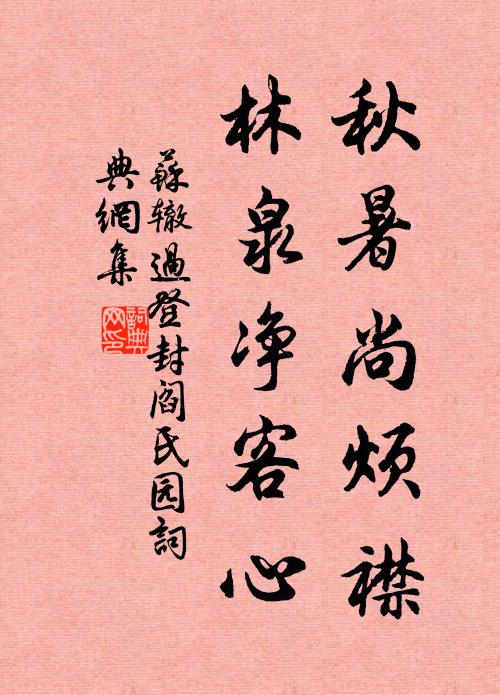 秋暑尚烦襟
林泉净客心
蘇辙過登封阎氏园詞
典網集
詞典网印